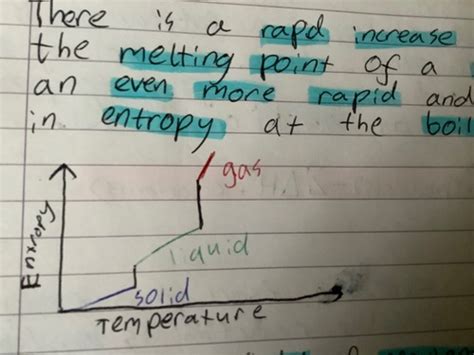 There is a rapid increase
the melting point of a
an even more rapid and
in entropy at the boil
gas
liquid
solid
Enxropy
Temperature